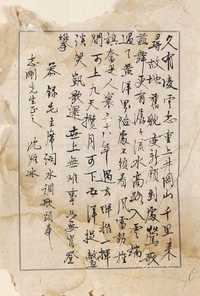 久有凌雲志重上井岡山千里来
尋故地舊貌变新颜到處鶯歌
燕舞更有潺潺流水高路入雲端
過了黄洋界險處不須看風雷動旌
旗奮是人寰三十八年過去彈指一揮
間可上九天攬月可下五洋捉鱉
談笑凱歌還世上無難事只要肯登
攀
恭録毛主席詞水調歌頭
志剛先生正
沈雁冰